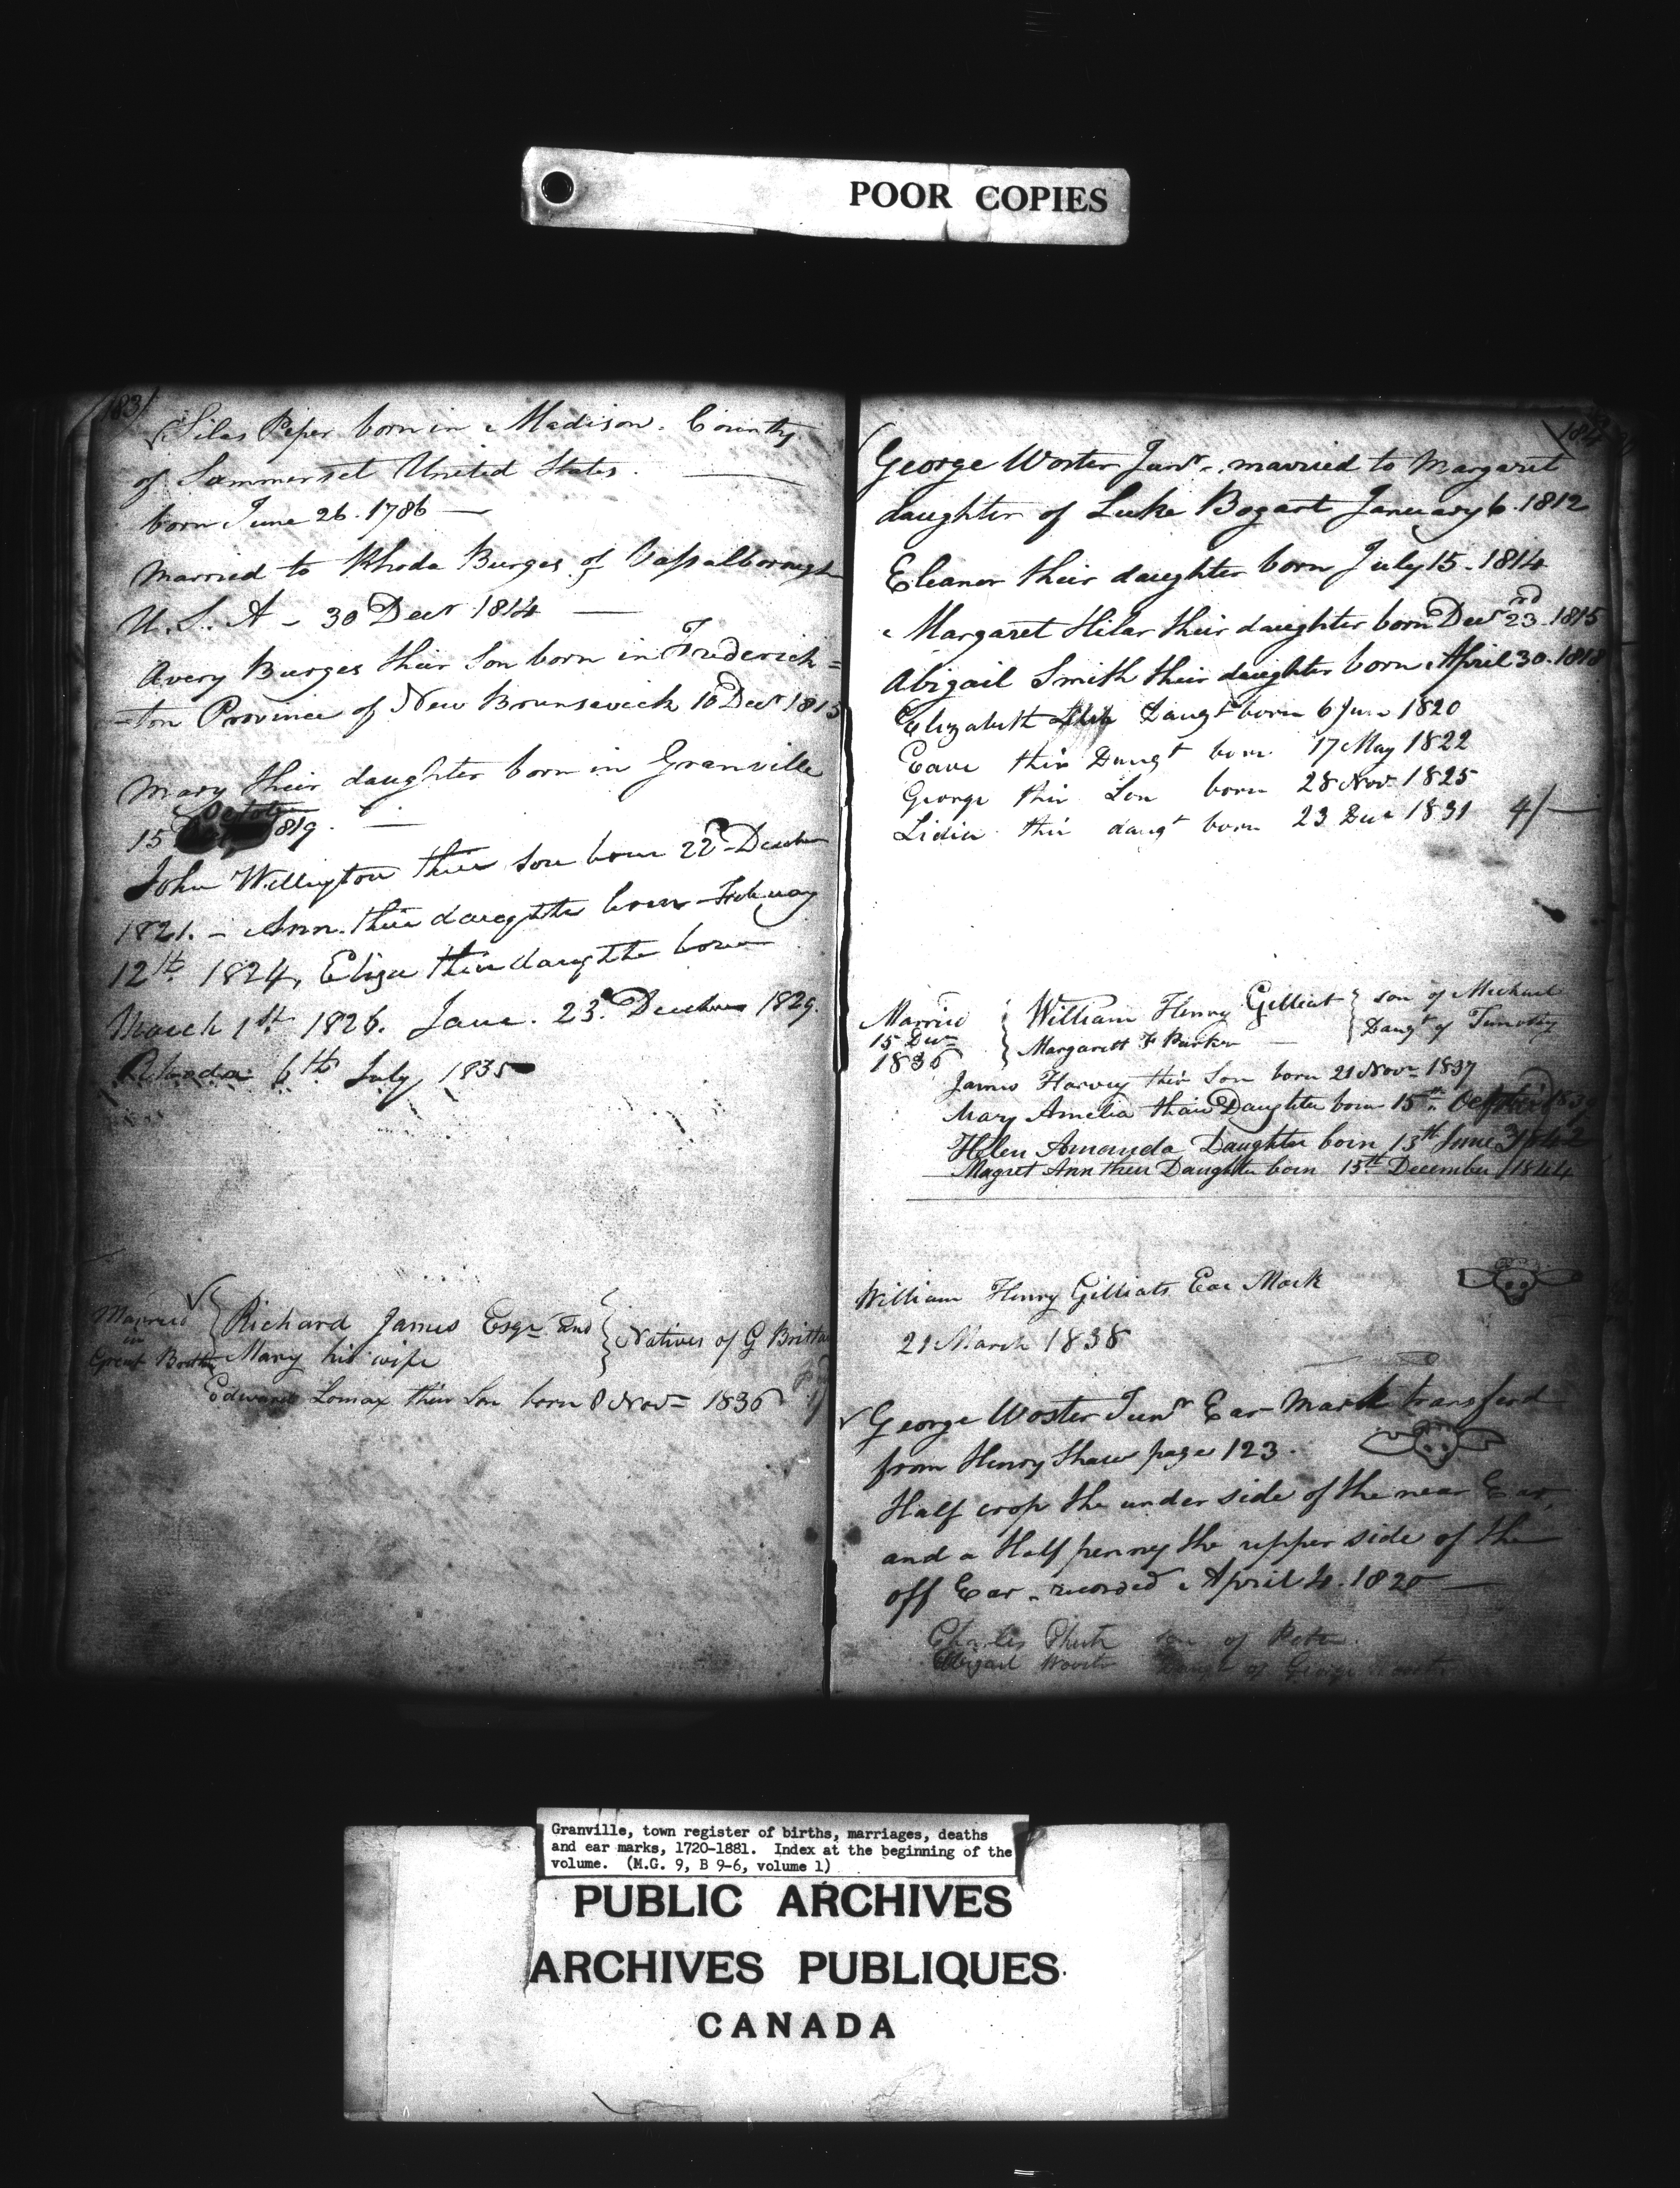 POOR COPIES
183
Silas Piper born in Madison. County
of Sommerset United States.
born June 26. 1786
married to Rhoda Burges of Vassalborough
U. S. A - 30 Decr 1814
Avery Burges their Son born in Frederick=
=ton Province of New Brunswick 16 Decr 1815
Mary their daughter born in Granville
October
15 1819.
John Wellington their son born 22d Decebr
1821. - Ann. their daughter born Febuay
12th 1824, Eliza their daughter born
March 1st 1826. Jane. 23d Decebr 1829.
Rhoda 6th July 1835
Married
in
Great Brittn
Richard James Esqr and
Mary his wife
Natives of G Brittan
Edward Lomax their Son born 8 Novr 1836
184
George Woster Junr. married to Margaret
daughter of Luke Bogart January 6. 1812
Eleanor their daughter born July 15. 1814
Margaret Hilar their daughter born Decr 23rd 1815
Abigail Smith their daughter born April 30. 1818
Elizabeth Daugt born 6 Jun 1820
Eave their Daugt born 17 May 1822
George their Son born 28 Novr 1825
Lidia their daugt born 23 Decr 1831 4/
Married
15 Decr
1836
William Henry Gilliat son of Michael
Margarett F Parker Daugt of Timothy
James Harvey their Son born 21 Novr 1837
Mary Amelia their Daughter born 15th October 1839
Helen Amanda Daughter born 13th June 1842
Magret Ann their Daughter born 15th December 1844
William Henry Gilliats Ear Mark
21 March 1838
George Woster Junr Ear Mark transferd
from Henry Shaw page 123.
Half crop the under side of the near Ear,
and a Half penny the upper side of the
off Ear. recorded April 4. 1820
Charles son of Peter.
Abigail Wooster Daugt of George Wooster
Granville, town register of births, marriages, deaths
and ear marks, 1720-1881. Index at the beginning of the
volume. (M.G. 9, B 9-6, volume 1)
PUBLIC ARCHIVES
ARCHIVES PUBLIQUES
CANADA